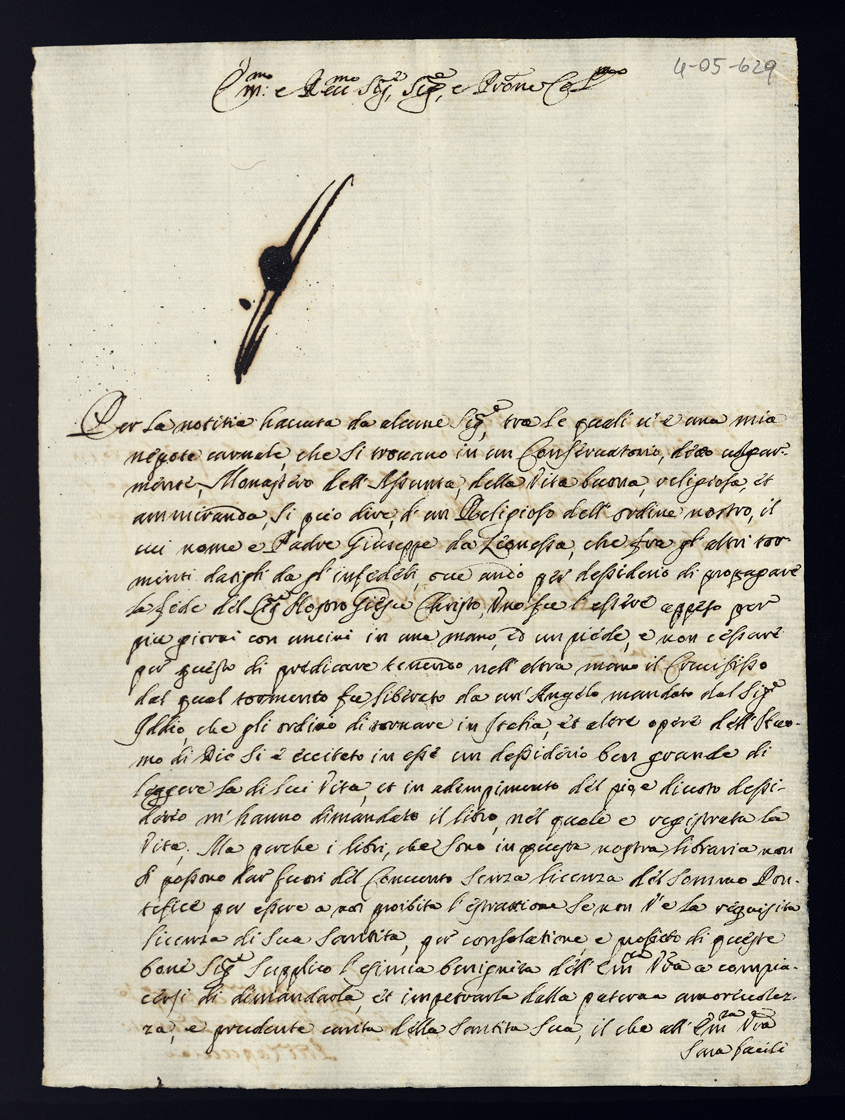 4-05-629
Em:mo e R.mo Sig.r Sig.re e Prone Col.mo
Per la notitia hauuta da alcune Sig.re, tra le quali u'e una mia
nepote carnale, che si trouano in un Conseruatorio, detto uolgar-
mente, Monastero dell'Assunta, della Vita buona, religiosa, et
ammiranda, si puo dire, d'un Religioso dell'ordine nostro, il
cui nome e Padre Giuseppe da Leonessa, che fra gl'altri tor-
menti datigli da gl'infedeli, oue andò per dessiderio di propagare
la fede del Sig.r Nostro Giesu Christo, Vno fu l'essere appeso per
piu giorni con uncini in una mano, ed un piede, e non cessare
per questo di predicare tenendo nell'altra mano il Crucifisso
dal qual tormento fu liberato da un'Angelo, mandato dal Sig.re
Iddio, che gli ordinò di tornare in Italia, et altre opere dell'Huo-
mo di Dio si è eccitato in esse un dessiderio ben grande di
leggere la di lui Vita, et in adempimento del pio e diuoto dessi-
derio m'hanno dimandato il libro, nel quale e registrata la
Vita. Ma perche i libri, che sono in questa nostra libraria non
si possono dar fuori del Conuento senza licenza del sommo Pon-
tefice per essere a noi proibita l'estrattione se non v'e la requisita
licenza di Sua Santita, per consolatione, e profitto di queste
bone Sig.re supplico l'esimia benignita dell'Em.za V'ra a compia-
cersi di dimandarla, et impetrarla dalla paterna amoreuolez-
za, e prudente carita della Santita Sua, il che all'Em.za V'ra
sara facile